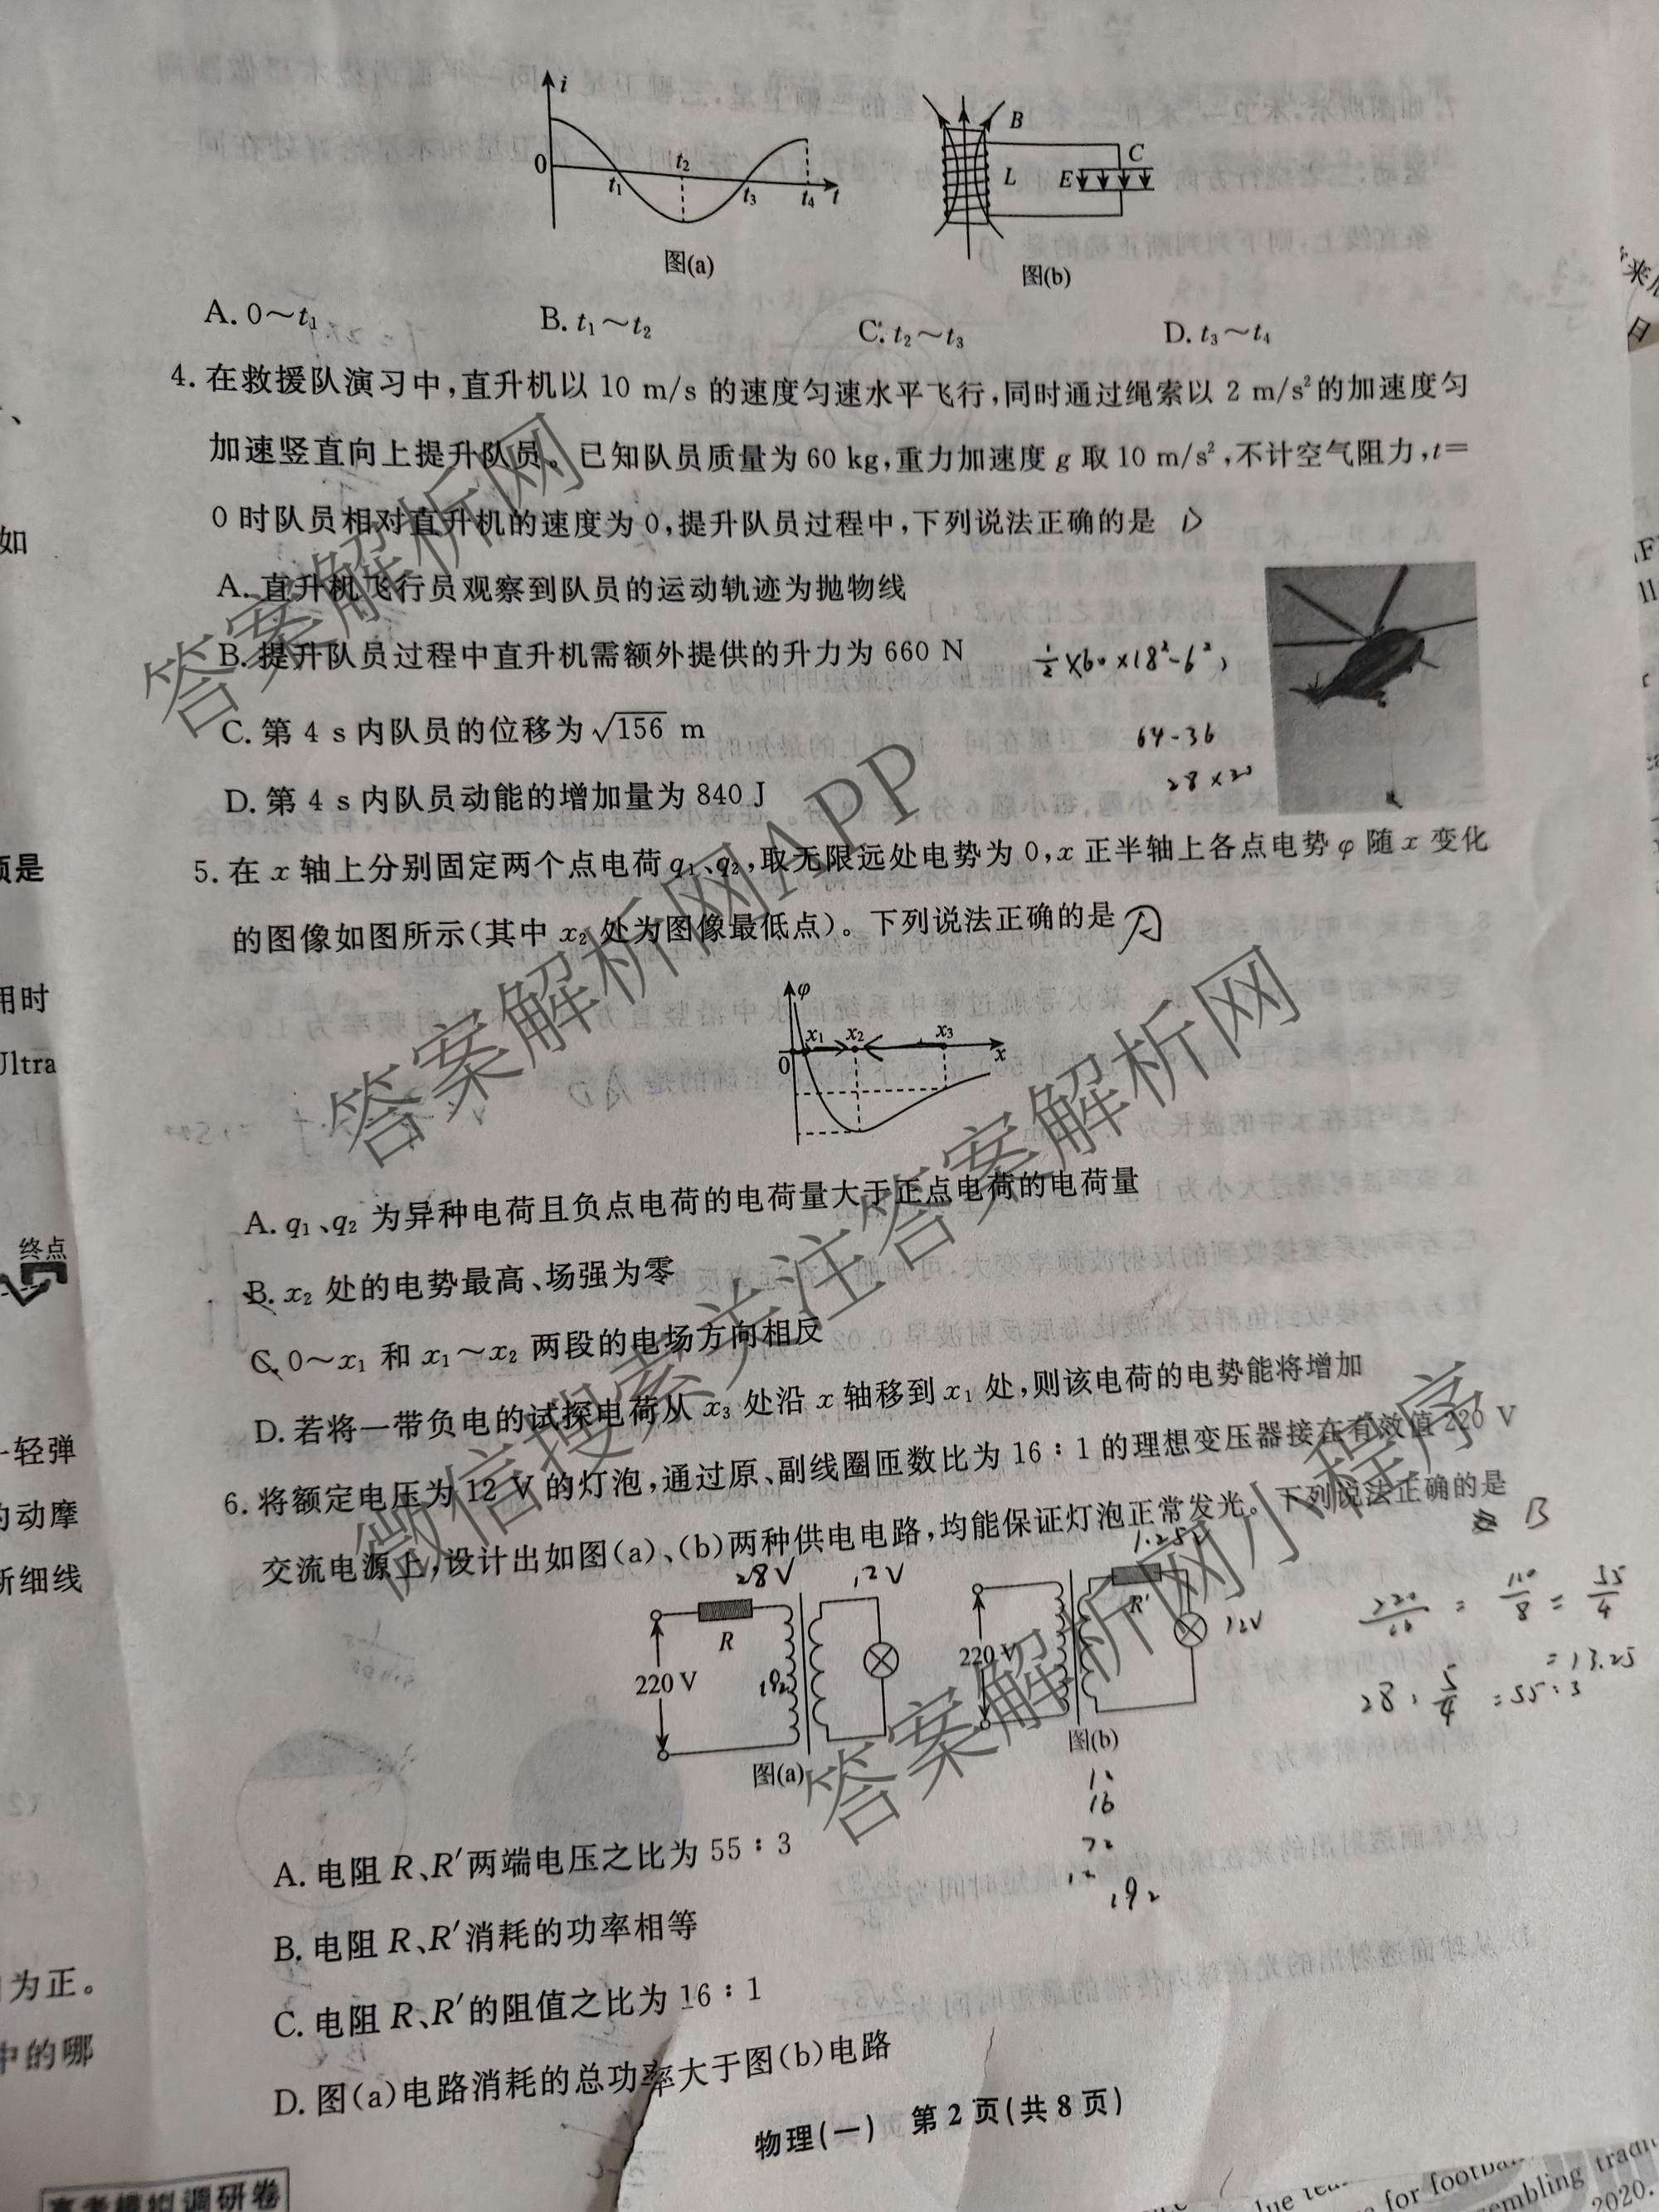 i
0
t₁
t₂
t₃
t₄
t
图(a)
B
L
C
E
图(b)
A. 0～t₁
B. t₁～t₂
C. t₂～t₃
D. t₃～t₄
4. 在救援队演习中,直升机以 10 m/s 的速度匀速水平飞行,同时通过绳索以 2 m/s²的加速度匀
加速竖直向上提升队员。已知队员质量为 60 kg,重力加速度 g 取 10 m/s²,不计空气阻力,t=
0 时队员相对直升机的速度为 0,提升队员过程中,下列说法正确的是 D
A. 直升机飞行员观察到队员的运动轨迹为抛物线
B. 提升队员过程中直升机需额外提供的升力为 660 N
½×60×18²-6²
C. 第 4 s 内队员的位移为 √156 m
64-36
28×20
D. 第 4 s 内队员动能的增加量为 840 J
5. 在 x 轴上分别固定两个点电荷 q₁、q₂,取无限远处电势为 0,x 正半轴上各点电势 φ 随 x 变化
的图像如图所示(其中 x₂ 处为图像最低点)。下列说法正确的是 A
φ
x₁
x₂
x₃
0
x
A. q₁、q₂ 为异种电荷且负点电荷的电荷量大于正点电荷的电荷量
B. x₂ 处的电势最高、场强为零
C. 0～x₁ 和 x₁～x₂ 两段的电场方向相反
D. 若将一带负电的试探电荷从 x₃ 处沿 x 轴移到 x₁ 处,则该电荷的电势能将增加
6. 将额定电压为 12 V 的灯泡,通过原、副线圈匝数比为 16∶1 的理想变压器接在有效值 220 V
交流电源上,设计出如图(a)、(b)两种供电电路,均能保证灯泡正常发光。下列说法正确的是
B
28V
12V
R
220 V
192
图(a)
1.25V
R′
220 V
12V
图(b)
220/16 = 110/8 = 55/4
=13.25
28:5/4 =55:3
16
72
12
192
A. 电阻 R、R′两端电压之比为 55∶3
B. 电阻 R、R′消耗的功率相等
C. 电阻 R、R′的阻值之比为 16∶1
D. 图(a)电路消耗的总功率大于图(b)电路
物理(一) 第 2 页(共 8 页)
高考模拟调研卷
如
项是
用时
Ultra
终点
一轻弹
的动摩
所细线
为正。
中的哪
for footba
sembling tradi
2020.
答案解析网
答案解析网APP
微信搜索关注答案解析网
答案解析网小程序